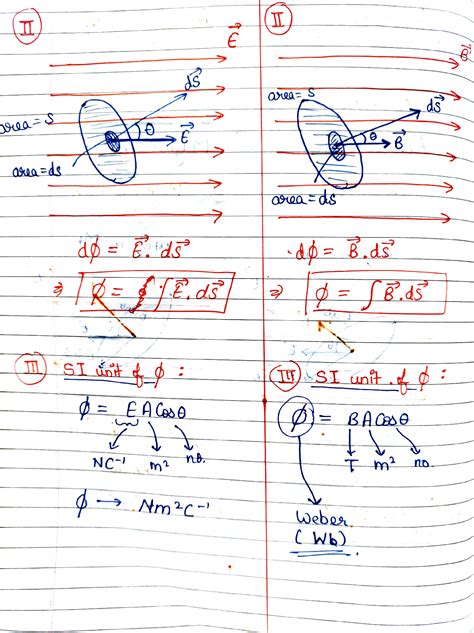 II
E⃗
dS⃗
area = S
θ
E⃗
area = ds
dϕ = E⃗ . ds⃗
⇒ ϕ = ∫ E⃗ . ds⃗
III SI unit of ϕ :
ϕ = EACosθ
NC⁻¹ m² no.
ϕ → Nm²C⁻¹
II
area = S
ds⃗
θ
B⃗
area = ds
dϕ = B⃗ . ds⃗
⇒ ϕ = ∫ B⃗ . ds⃗
SI unit of ϕ :
ϕ = BACosθ
T m² no.
Weber
(Wb)